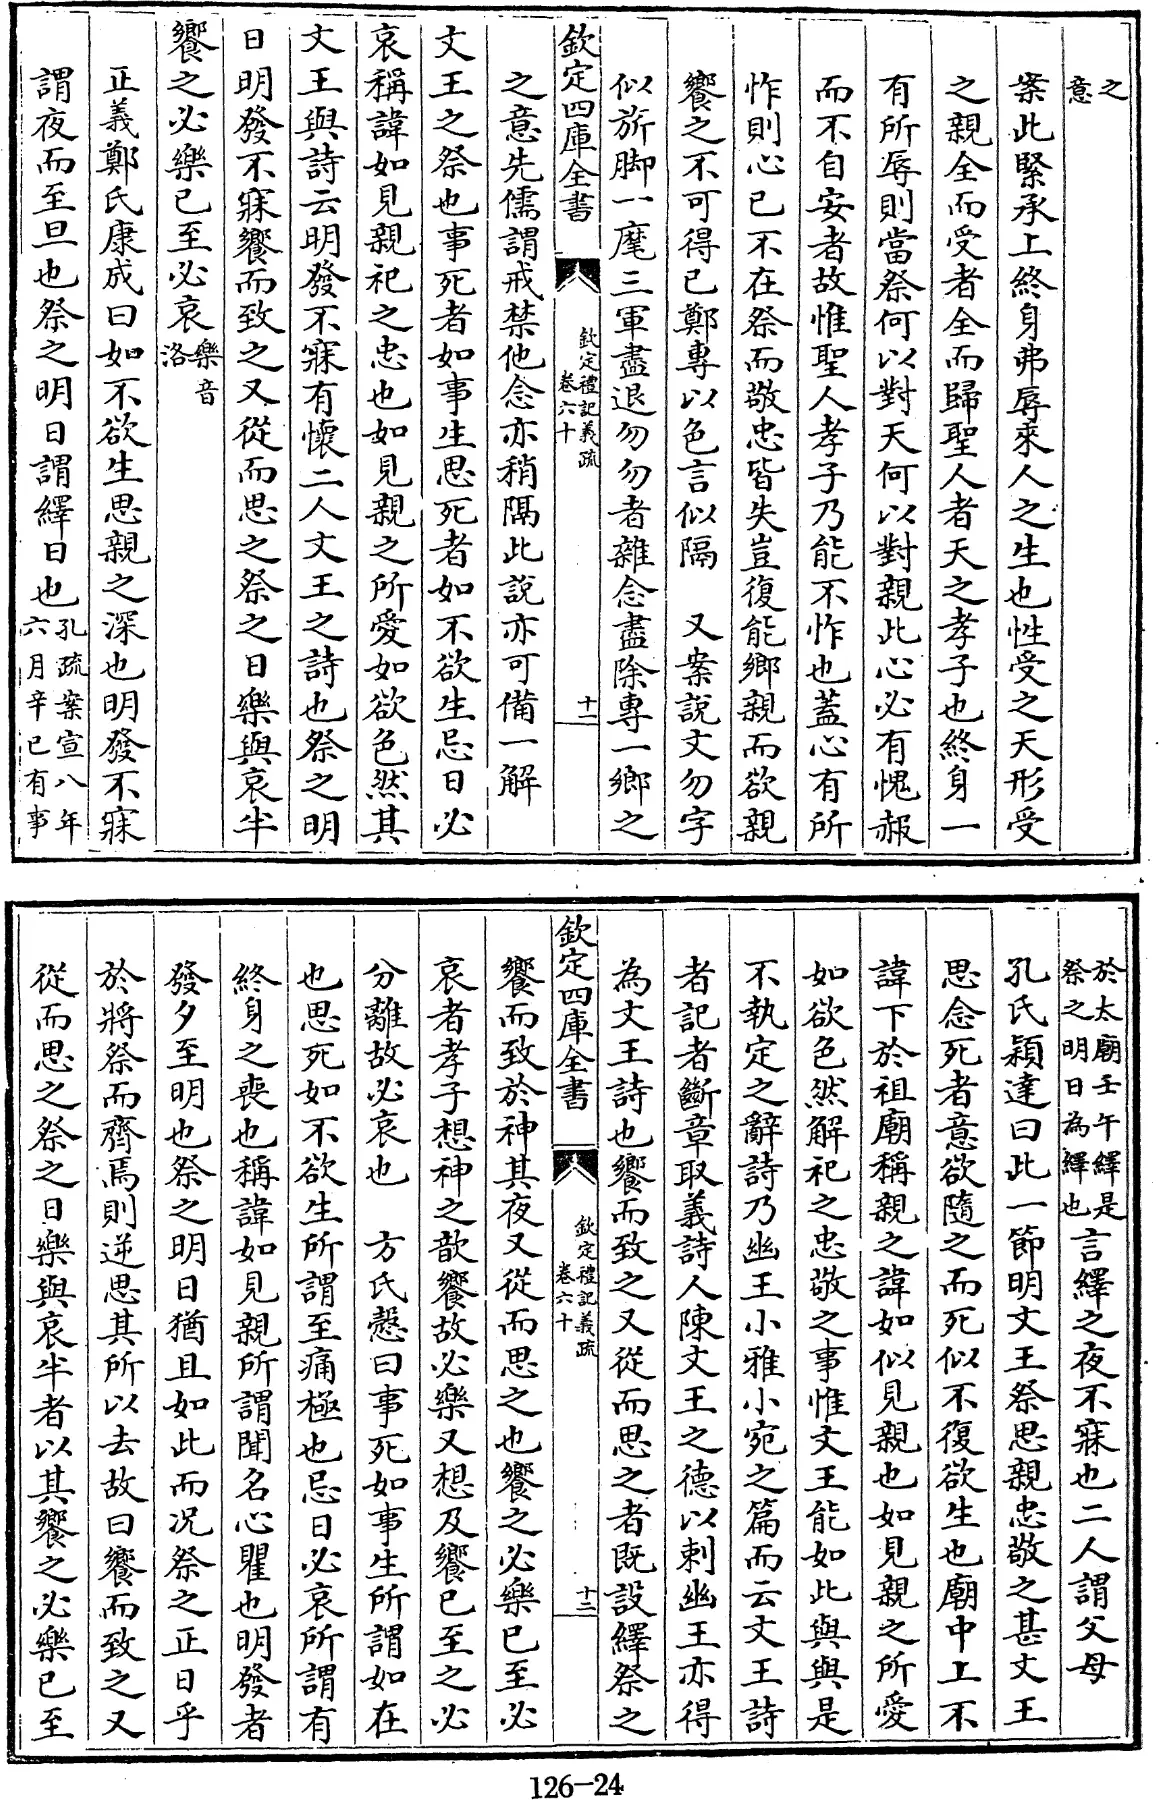 之意
案此緊承上終身弗辱來人之生也性受之天形受
之親全而受者全而歸聖人者天之孝子也終身一
有所辱則當祭何以對天何以對親此心必有愧赧
而不自安者故惟聖人孝子乃能不怍也蓋心有所
怍則心已不在祭而敬忠皆失豈復能鄉親而欲親
饗之不可得已鄭專以色言似隔　又案說文勿字
似旂脚一麾三軍盡退勿勿者雜念盡除專一鄉之
欽定四庫全書
欽定禮記義疏
卷六十
十一
之意先儒謂戒禁他念亦稍隔此說亦可備一解
文王之祭也事死者如事生思死者如不欲生忌日必
哀稱諱如見親祀之忠也如見親之所愛如欲色然其
文王與詩云明發不寐有懷二人文王之詩也祭之明
日明發不寐饗而致之又從而思之祭之日樂與哀半
饗之必樂已至必哀樂音洛
正義鄭氏康成曰如不欲生思親之深也明發不寐
謂夜而至旦也祭之明日謂繹日也孔疏案宣八年六月辛巳有事
於太廟壬午繹是祭之明日為繹也言繹之夜不寐也二人謂父母
孔氏穎達曰此一節明文王祭思親忠敬之甚文王
思念死者意欲隨之而死似不復欲生也廟中上不
諱下於祖廟稱親之諱如似見親也如見親之所愛
如欲色然解祀之忠敬之事惟文王能如此與與是
不執定之辭詩乃幽王小雅小宛之篇而云文王詩
者記者斷章取義詩人陳文王之德以刺幽王亦得
為文王詩也饗而致之又從而思之者既設繹祭之
欽定四庫全書
欽定禮記義疏
卷六十
十二
饗而致於神其夜又從而思之也饗之必樂已至必
哀者孝子想神之歆饗故必樂又想及饗已至之必
分離故必哀也　方氏慤曰事死如事生所謂如在
也思死如不欲生所謂至痛極也忌日必哀所謂有
終身之喪也稱諱如見親所謂聞名心瞿也明發者
發夕至明也祭之明日猶且如此而況祭之正日乎
於將祭而齊焉則逆思其所以去故曰饗而致之又
從而思之祭之日樂與哀半者以其饗之必樂已至
126-24